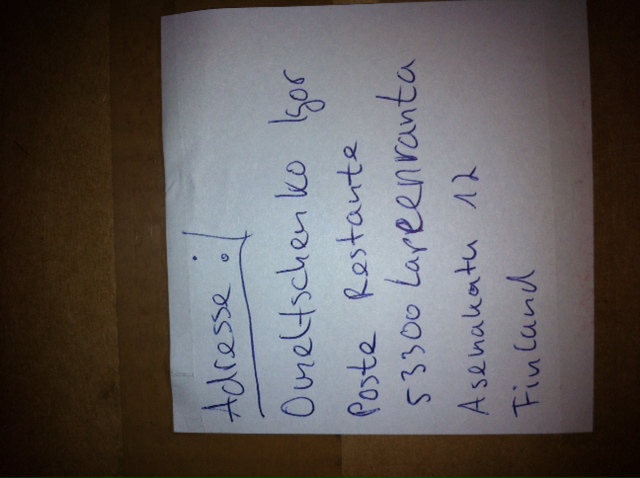 Adresse:
Ovseltschenko Igor
Poste Restante
53300 Lappeenranta
Asemakatu 12
Finland